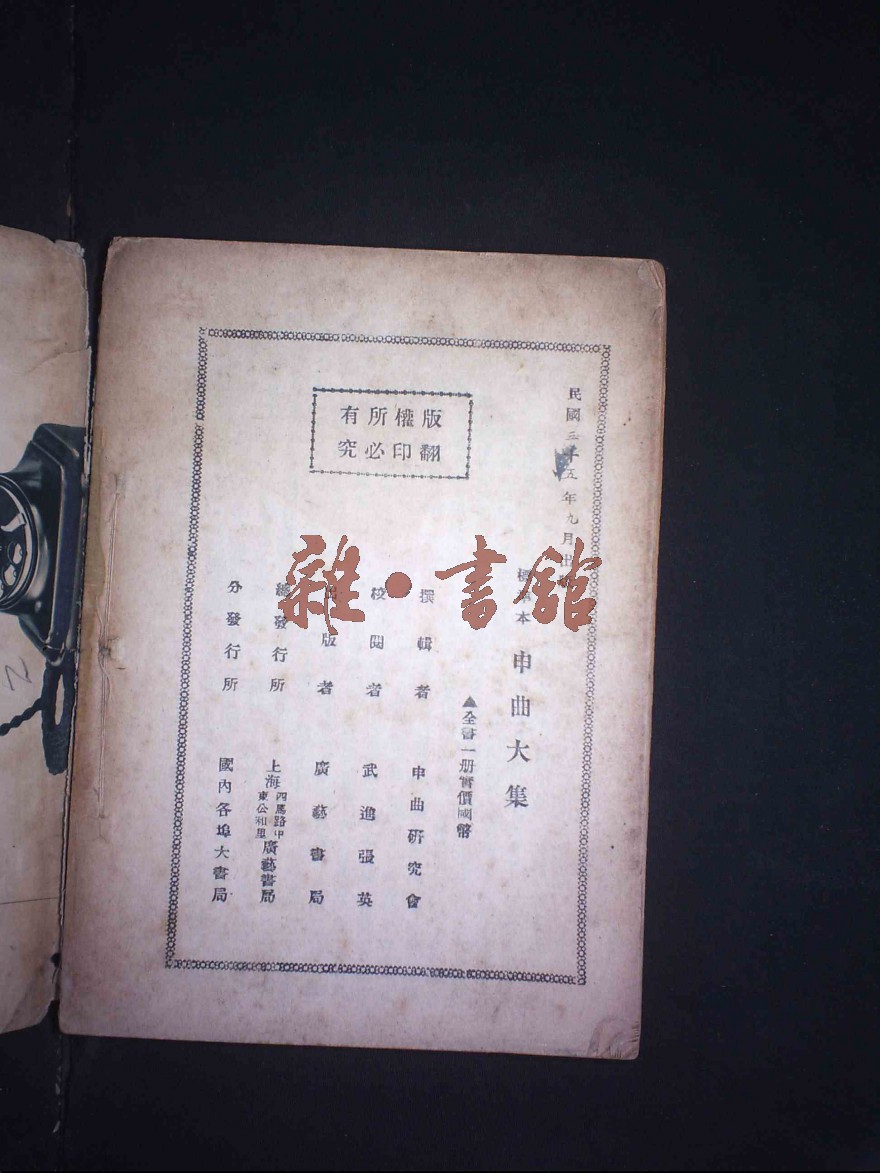 民國三十五年九月出版
標準本 申曲大集
▲全書一册實價國幣
版權所有
翻印必究
撰輯者 申曲研究會
校閱者 武進張英
出版者 廣藝書局
總發行所 上海四馬路中東公和里廣藝書局
分發行所 國內各埠大書局
雜·書館